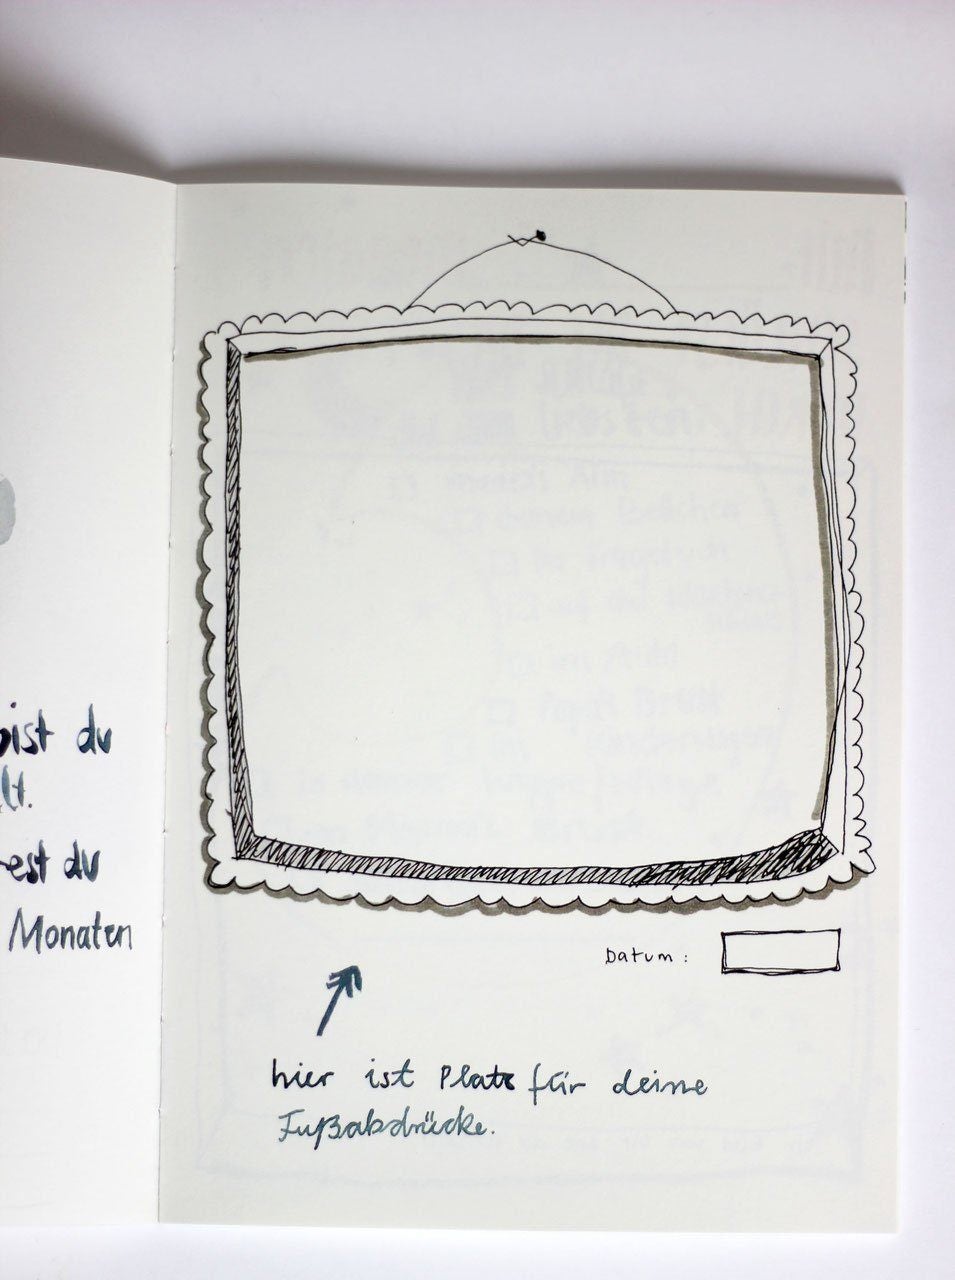 bist du
lt.
est du
Monaten
Datum:
hier ist Platz für deine
Fußabdrücke.